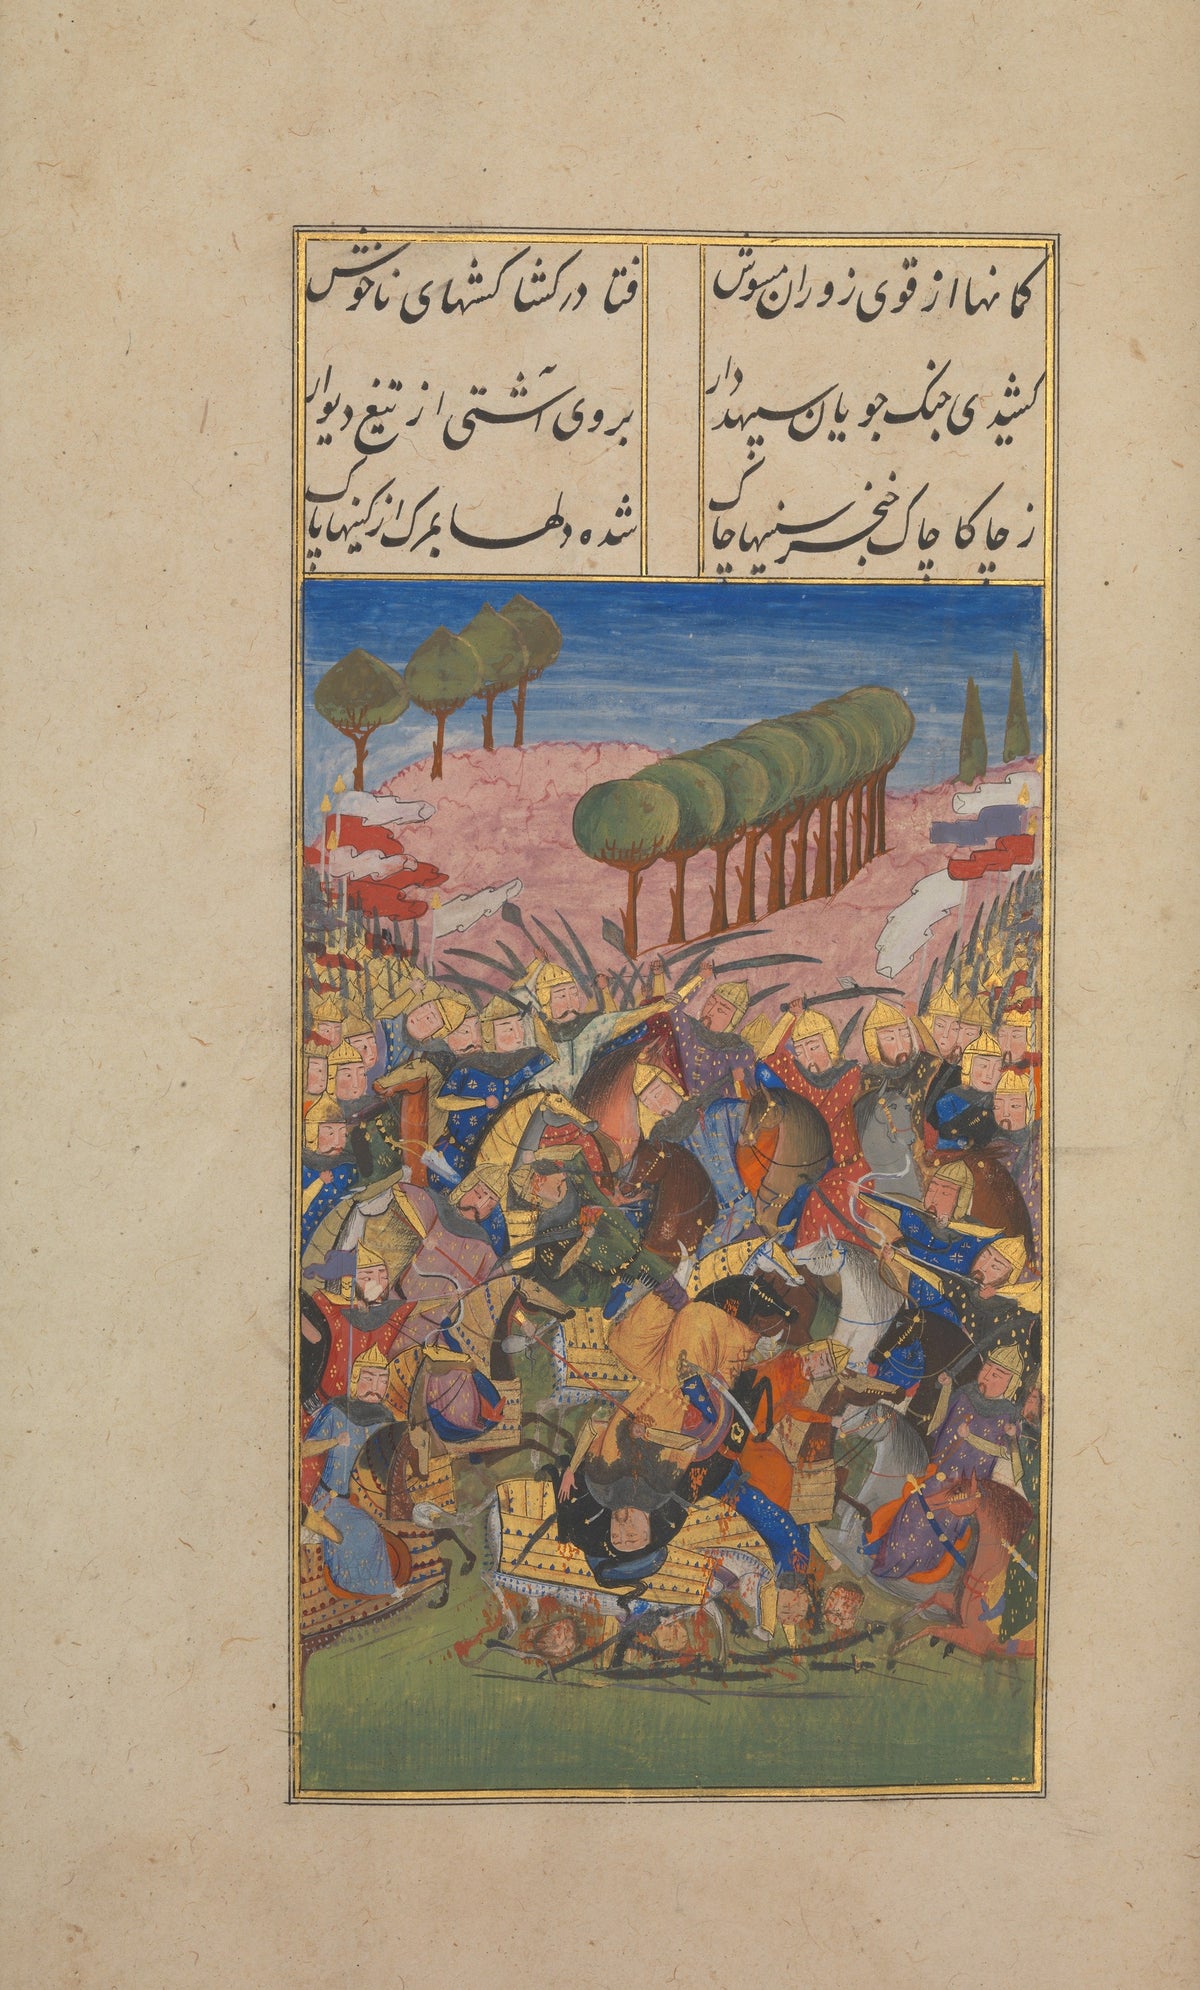 کمانها از قوی زوران مشوش
فتا در کشا کشهای ناخوش
کشیدی جنک جویان سپهدار
بروی آشتی از تیغ دیوار
ز چاکا چاک خنجر سینها چاک
شده دلها بمرک از کینها پاک